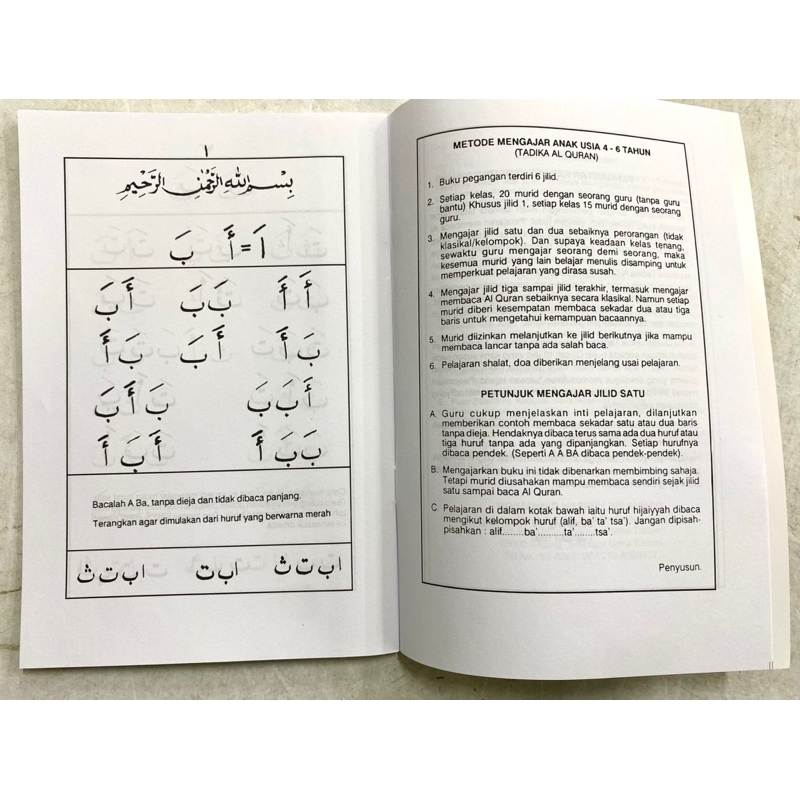 ١
بِسْمِ اللهِ الرَّحْمٰنِ الرَّحِيْمِ
اَ = أَ بَ
أَ أَ بَ بَ أَ بَ
بَ أَ أَ بَ بَ أَ
أَ بَ بَ بَ أَ بَ
بَ بَ أَ أَ بَ أَ
Bacalah A Ba, tanpa dieja dan tidak dibaca panjang.
Terangkan agar dimulakan dari huruf yang berwarna merah
ا ب ت ث ا ب ت ا ب ت ث
METODE MENGAJAR ANAK USIA 4 - 6 TAHUN
(TADIKA AL QURAN)
1. Buku pegangan terdiri 6 jilid.
2. Setiap kelas, 20 murid dengan seorang guru (tanpa guru
bantu) Khusus jilid 1, setiap kelas 15 murid dengan seorang
guru.
3. Mengajar jilid satu dan dua sebaiknya perorangan (tidak
klasikal/kelompok). Dan supaya keadaan kelas tenang,
sewaktu guru mengajar seorang demi seorang, maka
kesemua murid yang lain belajar menulis disamping untuk
memperkuat pelajaran yang dirasa susah.
4. Mengajar jilid tiga sampai jilid terakhir, termasuk mengajar
membaca Al Quran sebaiknya secara klasikal. Namun setiap
murid diberi kesempatan membaca sekadar dua atau tiga
baris untuk mengetahui kemampuan bacaannya.
5. Murid diizinkan melanjutkan ke jilid berikutnya jika mampu
membaca lancar tanpa ada salah baca.
6. Pelajaran shalat, doa diberikan menjelang usai pelajaran.
PETUNJUK MENGAJAR JILID SATU
A. Guru cukup menjelaskan inti pelajaran, dilanjutkan
memberikan contoh membaca sekadar satu atau dua baris
tanpa dieja. Hendaknya dibaca terus sama ada dua huruf atau
tiga huruf tanpa ada yang dipanjangkan. Setiap hurufnya
dibaca pendek. (Seperti A A BA dibaca pendek-pendek).
B. Mengajarkan buku ini tidak dibenarkan membimbing sahaja.
Tetapi murid diusahakan mampu membaca sendiri sejak jilid
satu sampai baca Al Quran.
C. Pelajaran di dalam kotak bawah iaitu huruf hijaiyyah dibaca
mengikut kelompok huruf (alif, ba' ta' tsa'). Jangan dipisah-
pisahkan : alif........ba'...........ta'........tsa'.
Penyusun.